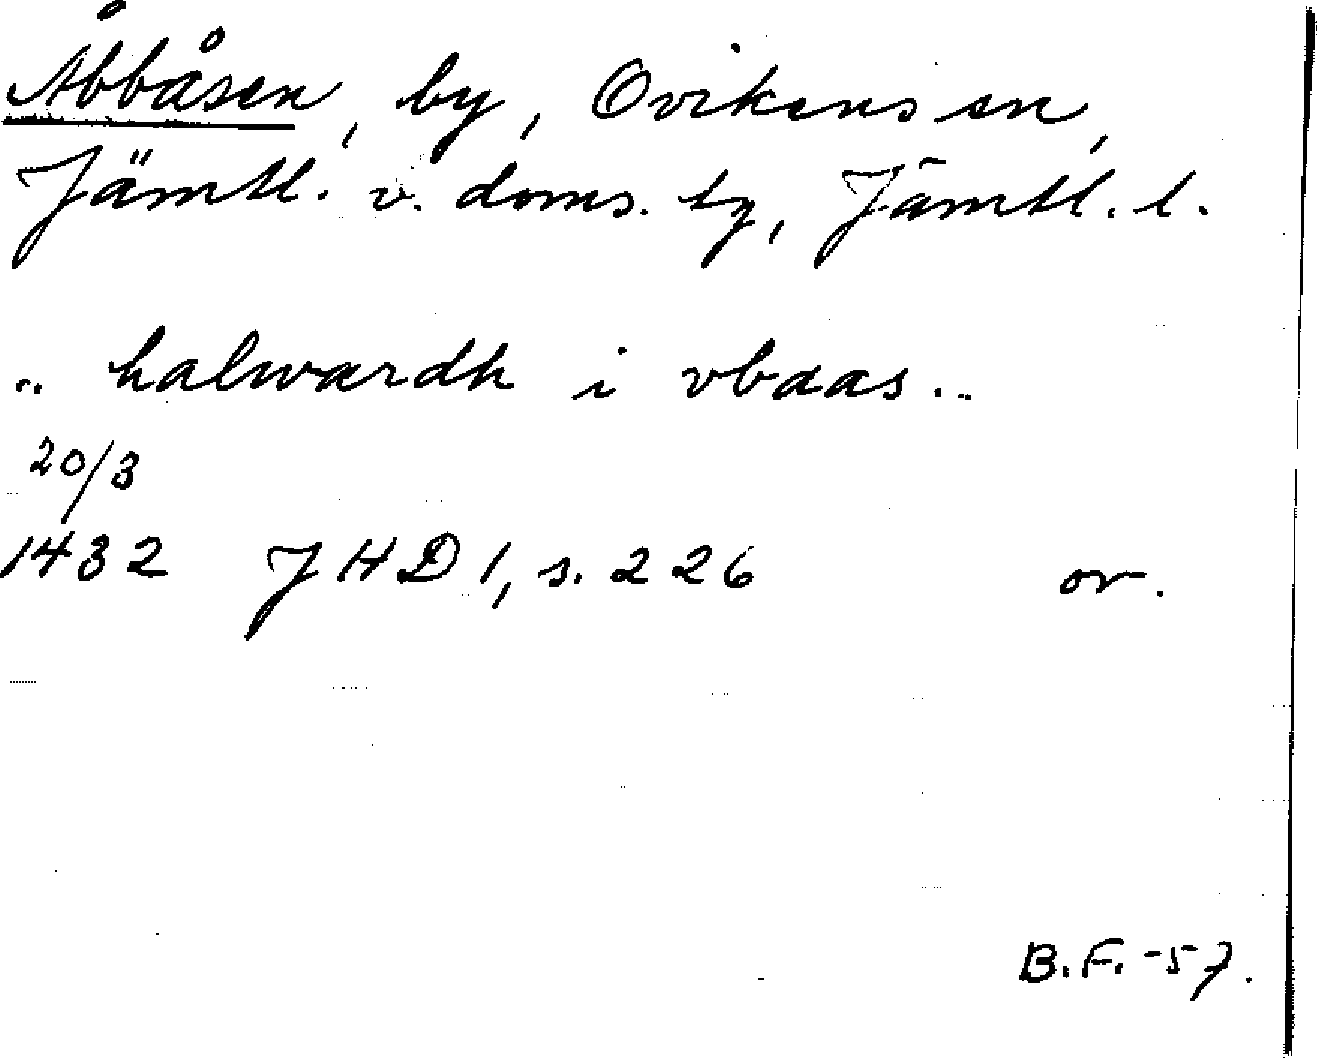 Åbbåsen, by, Ovikens sn,
Jämtl. v. doms. tg, Jämtl. l.
.. halwardh i vbaas...
20/3
1432 JHD 1, s. 226 or.
B.F. -57.